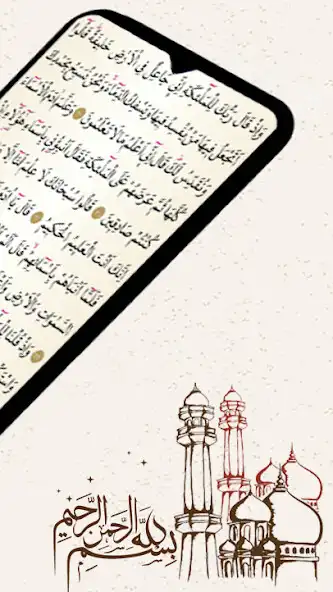 وَإِذْ قَالَ رَبُّكَ لِلْمَلَٰٓئِكَةِ إِنِّي جَاعِلٌ فِي الْأَرْضِ خَلِيفَةً قَالُوٓا
أَتَجْعَلُ فِيهَا مَن يُفْسِدُ فِيهَا وَيَسْفِكُ الدِّمَآءَ وَنَحْنُ نُسَبِّحُ بِحَمْدِكَ
وَنُقَدِّسُ لَكَ قَالَ إِنِّيٓ أَعْلَمُ مَا لَا تَعْلَمُونَ وَعَلَّمَ ءَادَمَ الْأَسْمَآءَ
كُلَّهَا ثُمَّ عَرَضَهُمْ عَلَى الْمَلَٰٓئِكَةِ فَقَالَ أَنۢبِـُٔونِي بِأَسْمَآءِ هَٰٓؤُلَآءِ إِن
كُنتُمْ صَادِقِينَ قَالُوا سُبْحَانَكَ لَا عِلْمَ لَنَآ إِلَّا
إِنَّكَ أَنتَ الْعَلِيمُ الْحَكِيمُ قَالَ يَٰٓـَٔادَمُ
فَلَمَّآ أَنۢبَأَهُم بِأَسْمَآئِهِمْ قَالَ
السَّمَٰوَٰتِ وَالْأَرْضِ
وَإِذْ قُلْنَا
بِسْمِ اللَّهِ الرَّحْمَٰنِ الرَّحِيمِ